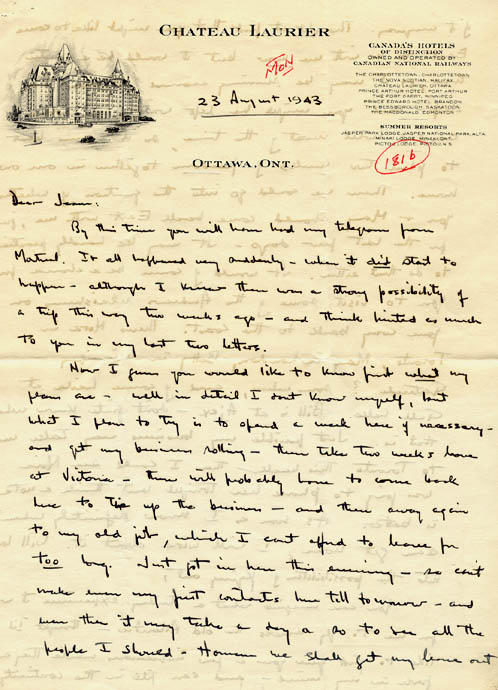 CHATEAU LAURIER
CANADA'S HOTELS
OF DISTINCTION
OWNED AND OPERATED BY
CANADIAN NATIONAL RAILWAYS
THE CHARLOTTETOWN, CHARLOTTETOWN
THE NOVA SCOTIAN, HALIFAX
CHATEAU LAURIER, OTTAWA
PRINCE ARTHUR HOTEL, PORT ARTHUR
THE FORT GARRY, WINNIPEG
PRINCE EDWARD HOTEL, BRANDON
THE BESSBOROUGH, SASKATOON
THE MACDONALD, EDMONTON
SUMMER RESORTS
JASPER PARK LODGE, JASPER NATIONAL PARK, ALTA.
MINAKI LODGE, MINAKI, ONT.
PICTOU LODGE, PICTOU, N.S.
MON
23 August 1943
1816
OTTAWA, ONT.
Dear Jean:
By this time you will have had my telegram from
Montreal. It all happened very suddenly – when it did start to
happen – although I knew there was a strong possibility of
a trip this way two weeks ago – and think hinted as much
to you in my last two letters.
Now I guess you would like to know first what my
plans are – well in detail I dont know myself, but
what I plan to try is to spend a week here if necessary –
and get my business rolling – then take two weeks leave
at Victoria – then will probably have to come back
here to tie up the business – and then away again
to my old job, which I cant afford to leave for
too long. Just got in here this evening – so can't
make even my first contacts here till tomorrow – and
even then it may take a day or so to see all the
people I should – However we shall get my leave out